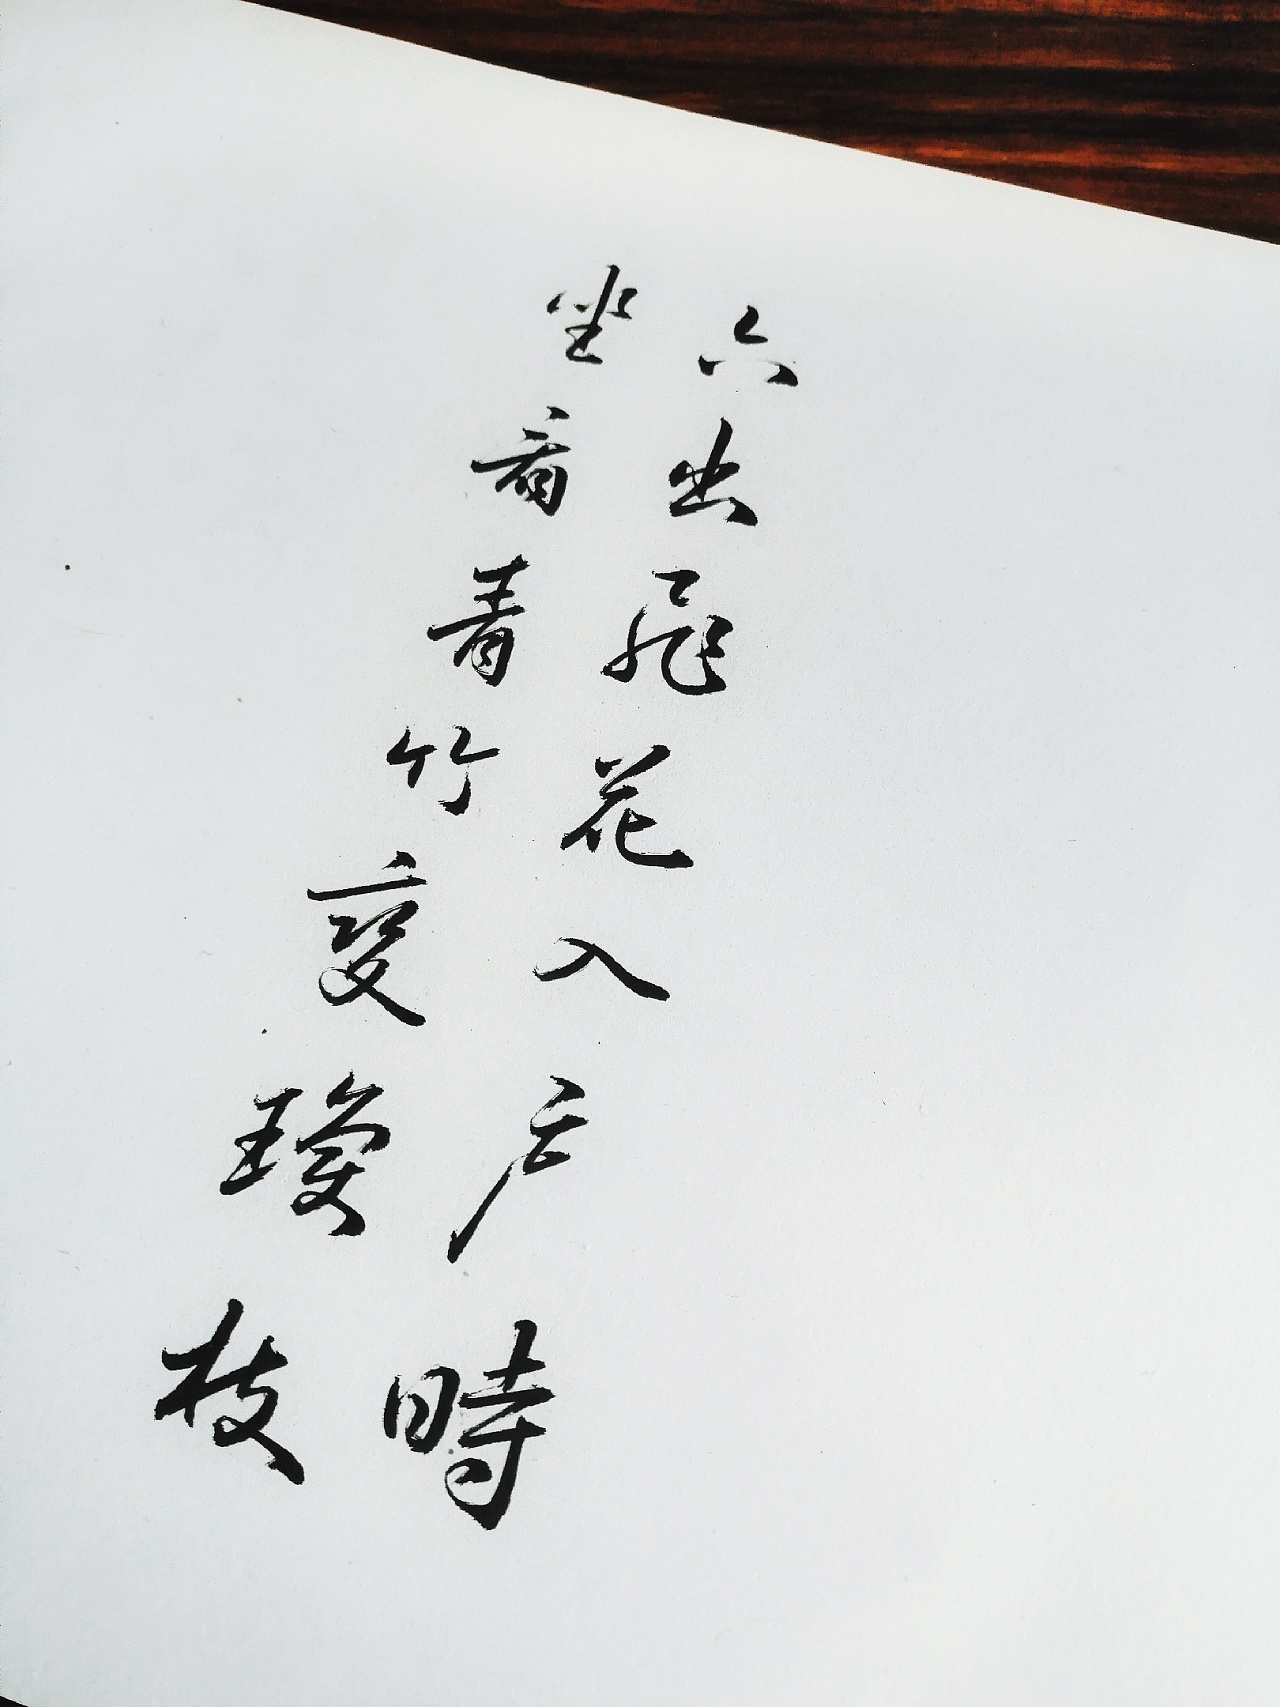 六出飛花入户時
坐看青竹變瓊枝